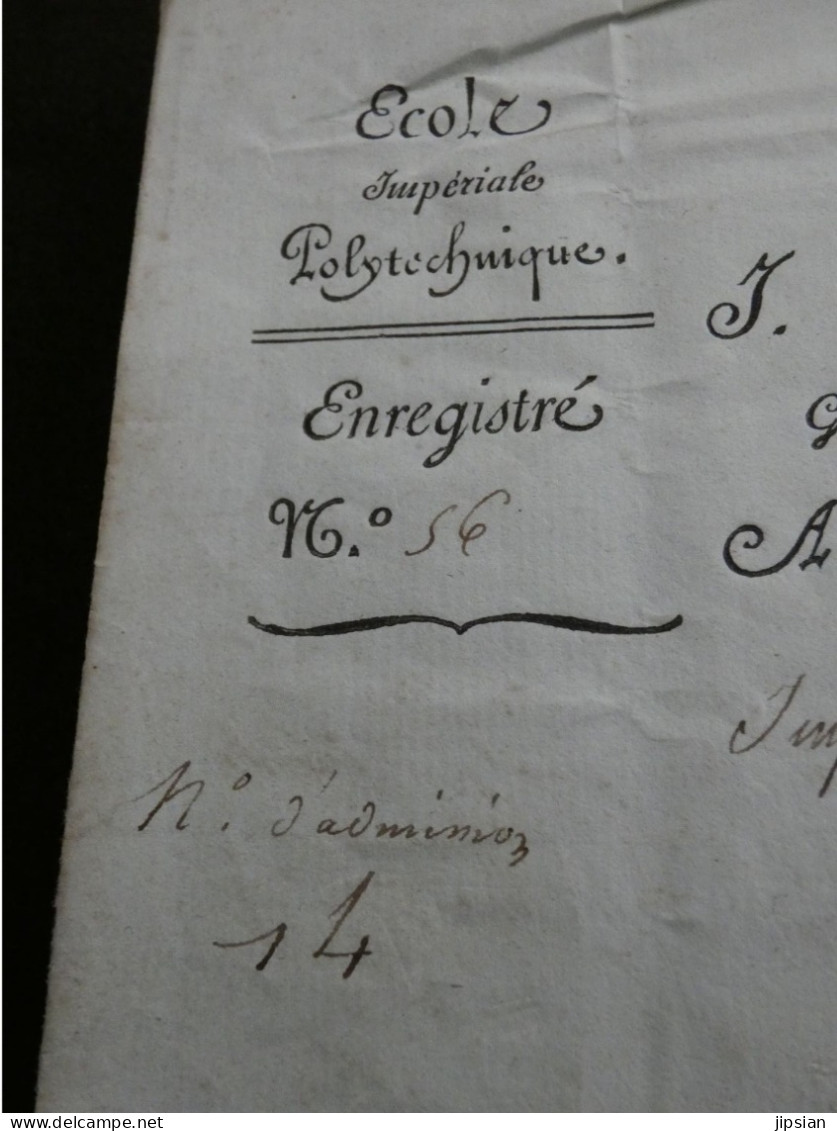 Ecole
Impériale
Polytechnique.
J.
Enregistré
G
N.º 56
A
Imp
Nº. d'admission
14
delcampe.net
jipsian